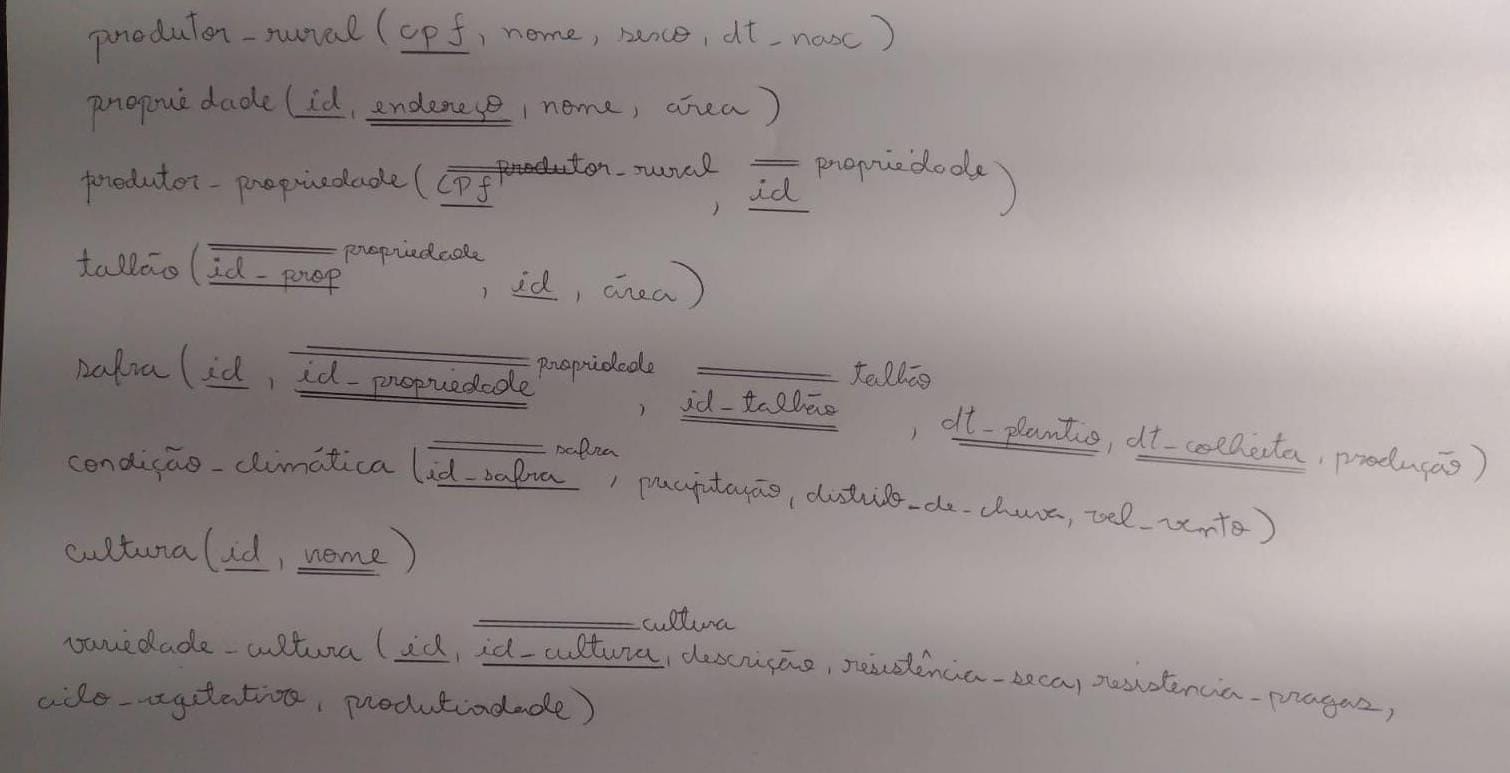 produtor_rural (cpf, nome, sexo, dt_nasc)
propriedade (id, endereço, nome, área)
produtor_propriedade (cpf produtor_rural, id propriedade)
talhão (id_prop propriedade, id, área)
safra (id, id_propriedade propriedade, id_talhão talhão, dt_plantio, dt_colheita, produção)
condição_climática (id_safra safra, precipitação, distrib_de_chuva, vel_vento)
cultura (id, nome)
variedade_cultura (id, id_cultura cultura, descrição, resistência_seca, resistencia_pragas,
ciclo_vegetativo, produtividade)